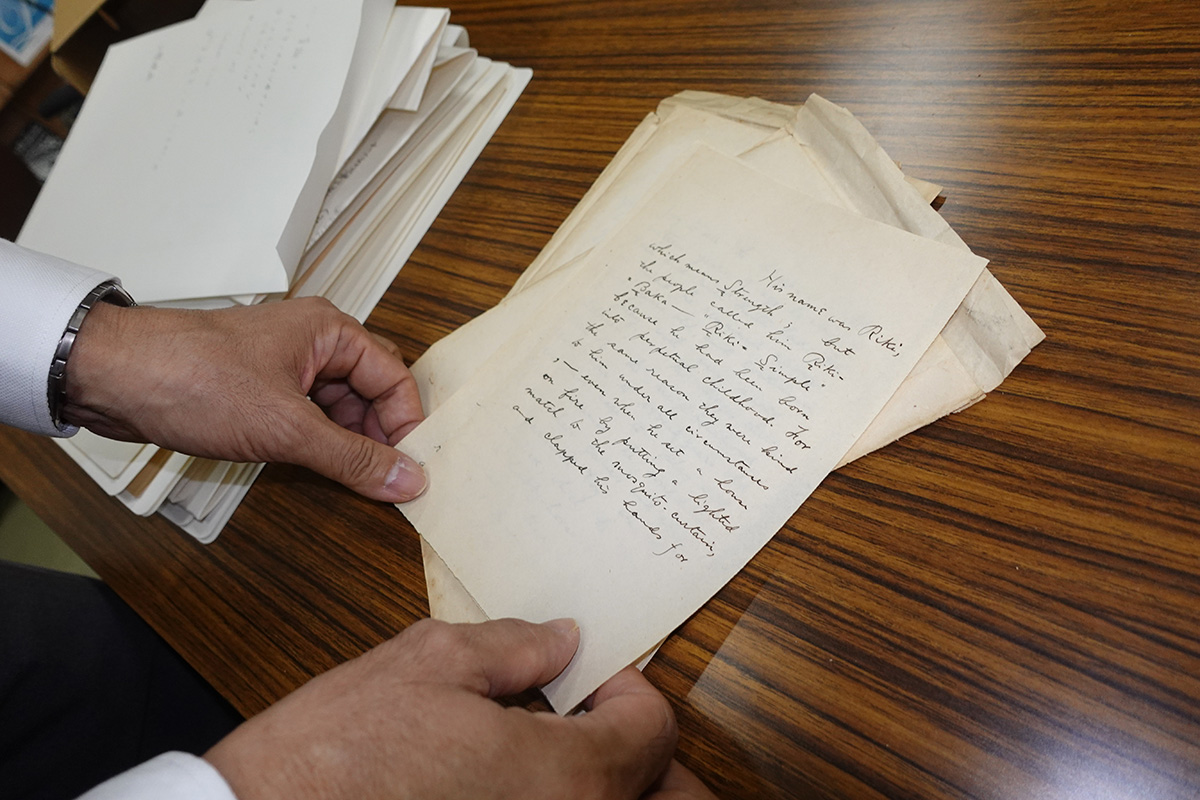 His name was Riki,
which means Strength; but
the people called him Riki-
Baka — "Riki-Simple"
because he had been born
into perpetual childhood. For
the same reason they were kind
to him under all circumstances
, — even when he set a house
on fire by putting a lighted
match to the mosquito-curtain,
and clapped his hands for